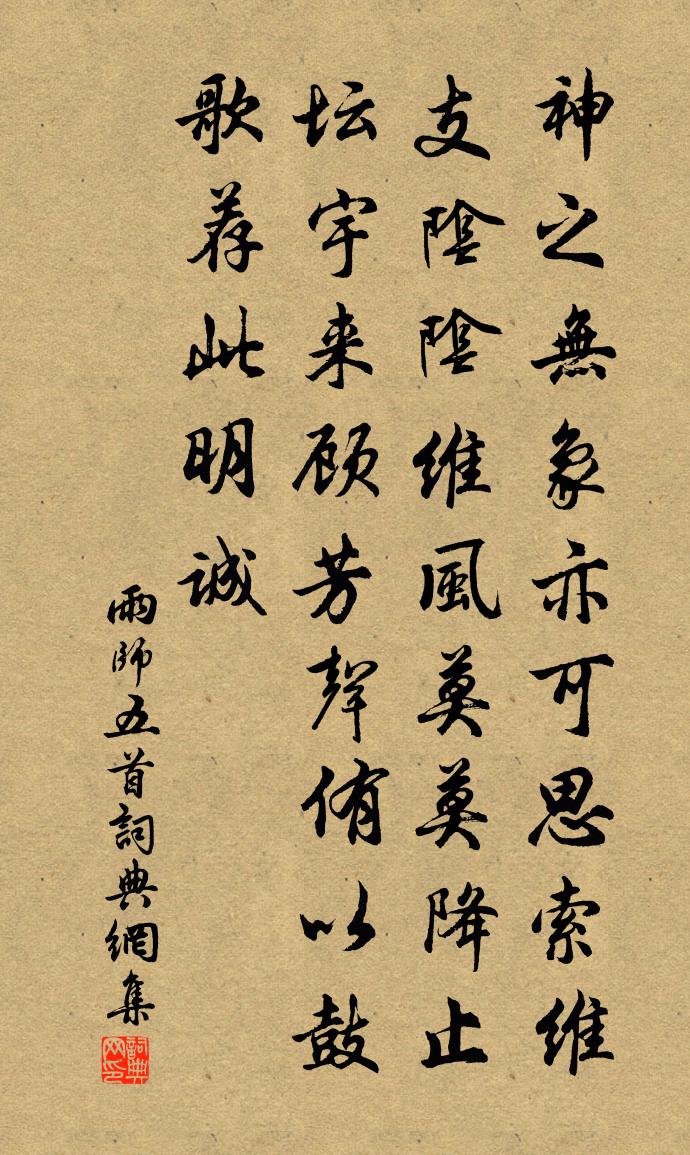 神之無象亦可思索維
支陰陰維風莫莫降止
坛宇来顾芳聲侑以鼓
歌荐此明诚
雨師五首詞典網集
詞典网印